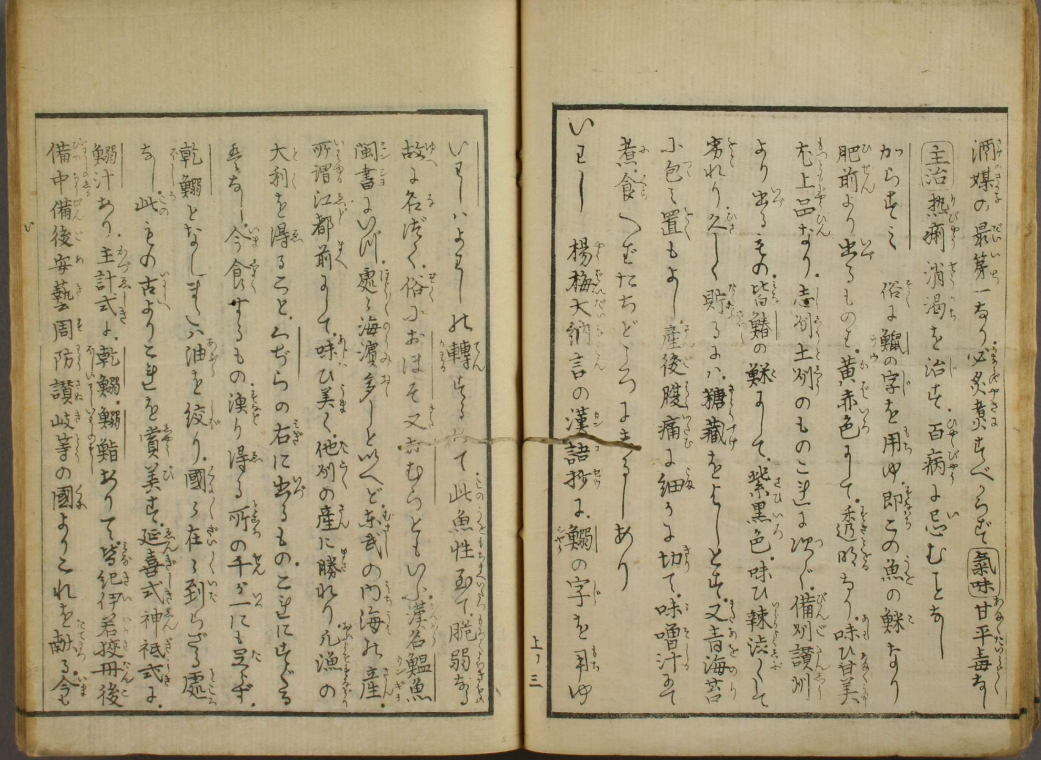 酒媒の最第一なり必炙煮すべからず 氣味 甘平毒なし
主治 熱痢消渇を治す百病に忌むことなし
からすみ 俗に鱲の字を用ゆ即この魚の鮇なり
肥前より出るものを黄赤色にして透明なり味ひ甘美
尤上品なり志州土州のものこれに次ぐ備州讃州
より出るもの皆鰆の鮇にして紫黒色味ひ辣渋くして
劣れり久しく貯るには糖蔵をよしとす又青海苔
に包み置もよし産後腹痛に細かに切て味噌汁にて
煮食へばたちどころにしるしあり
いわし 楊梅大納言の漢語抄に鰯の字を用ゆ
いわしはよわしの轉するにて此魚性至て脆弱なる
故に名づく俗におほそ又むらともいふ漢名鰮魚
閩書にいづ處々海濱多しといへど東武の内海の産
所謂江都前にして味ひ美く他州の産に勝れり凡漁の
大利を得ること くぢらの右に出るものこれにすぐる
はなし今食せるもの漁り得る所の千が一にも足らず
乾鰯となしまたは油を絞り國々在々到らざる處
なし此もの古よりこれを賞美す延喜式神祇式に
鰯汁あり主計式に乾鰯鰯鮨ありて皆紀伊若狭丹後
備中備後安藝周防讃岐等の國よりこれを献る今も
上ノ三